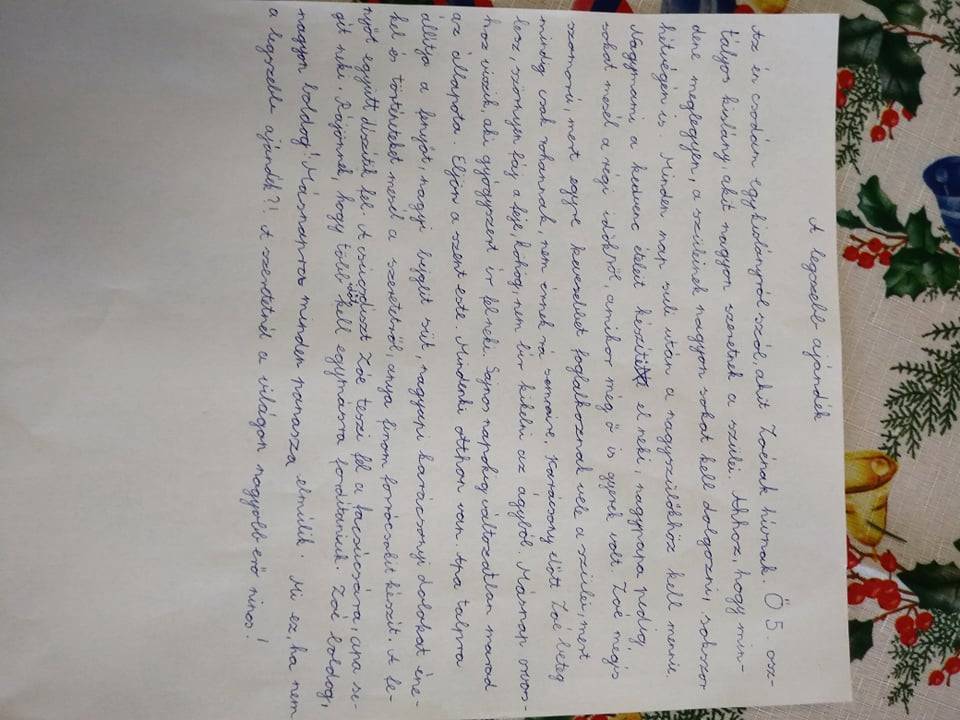 A legszebb ajándék
Az én csodám egy kislányról szól, akit Zoénak hívnak. Ő 5. osz-
tályos kislány, akit nagyon szeretnek a szülei. Ahhoz, hogy min-
dene meglegyen, a szüleinek nagyon sokat kell dolgozni, sokszor
hétvégén is. Minden nap suli után a nagyszülőkhöz kell mennie.
Nagymami a kedvenc ételeit készíti el neki, nagypapa pedig
sokat mesél a régi időkről, amikor még ő is gyerek volt. Zoé mégis
szomorú, mert egyre kevesebbet foglalkoznak vele a szülei, mert
mindig csak rohannak, nem érnek rá semmire. Karácsony előtt Zoé beteg
lesz, szörnyen fáj a feje, köhög, nem bír kikelni az ágyból. Másnap orvos-
hoz viszik aki gyógyszert ír fel neki. Sajnos napokig változatlan marad
az állapota. Eljön a szent este. Mindenki otthon van. Apa talpra
állítja a fenyőt, nagyi bejglit süt, nagyapi karácsonyi dalokat éne-
kel és történeteket mesél a szeretetről, anya finom forrócsokit készít. A fe-
nyőt együtt díszítik fel. A csúcsdíszt Zoé teszi fel a facsúcsára, apa se-
gít neki. Rájönnek, hogy több időt kell egymásra fordítaniuk. Zoé boldog,
nagyon boldog! Másnapra minden panasza elmúlik. Mi ez, ha nem
a legszebb ajándék?! A szeretetnél a világon nagyobb erő nincs!